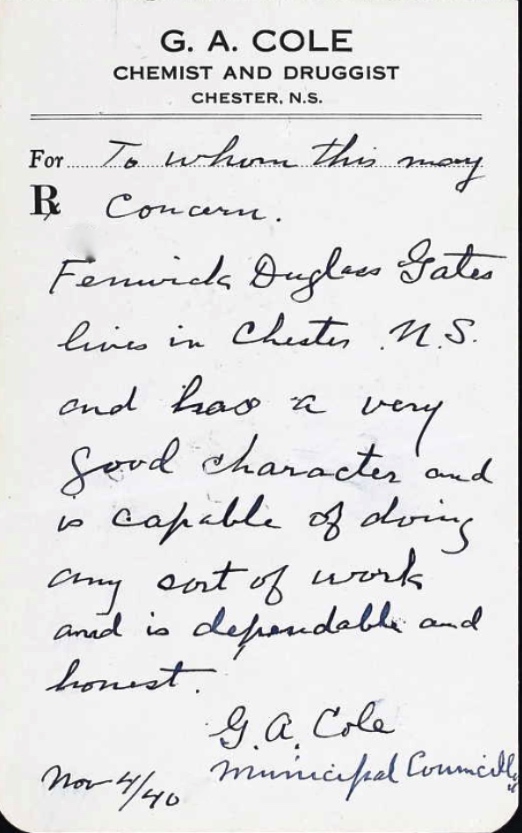 G. A. COLE
CHEMIST AND DRUGGIST
CHESTER, N.S.
For To whom this may
℞ Concern.
Fenwick Duglass Gates
lives in Chester N.S.
and has a very
good character and
is capable of doing
any sort of work
and is dependable and
honest.
G. A. Cole
Municipal Councillor
Nov 4/40